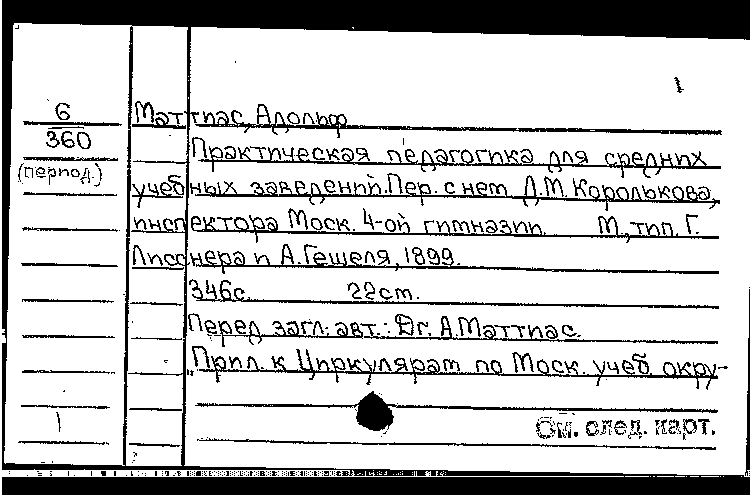 1
6
360
(период.)
Маттиас, Адольф
Практическая педагогика для средних
учебных заведений. Пер. с нем. Д.М. Королькова,
инспектора Моск. 4-ой гимназии. М., тип. Г.
Лисснера и А. Гешеля, 1899.
346с. 22см.
Перед загл. авт.: Dr. А. Маттиас.
"Прил. к Циркулярам по Моск. учеб. окру-
1
См. след. карт.